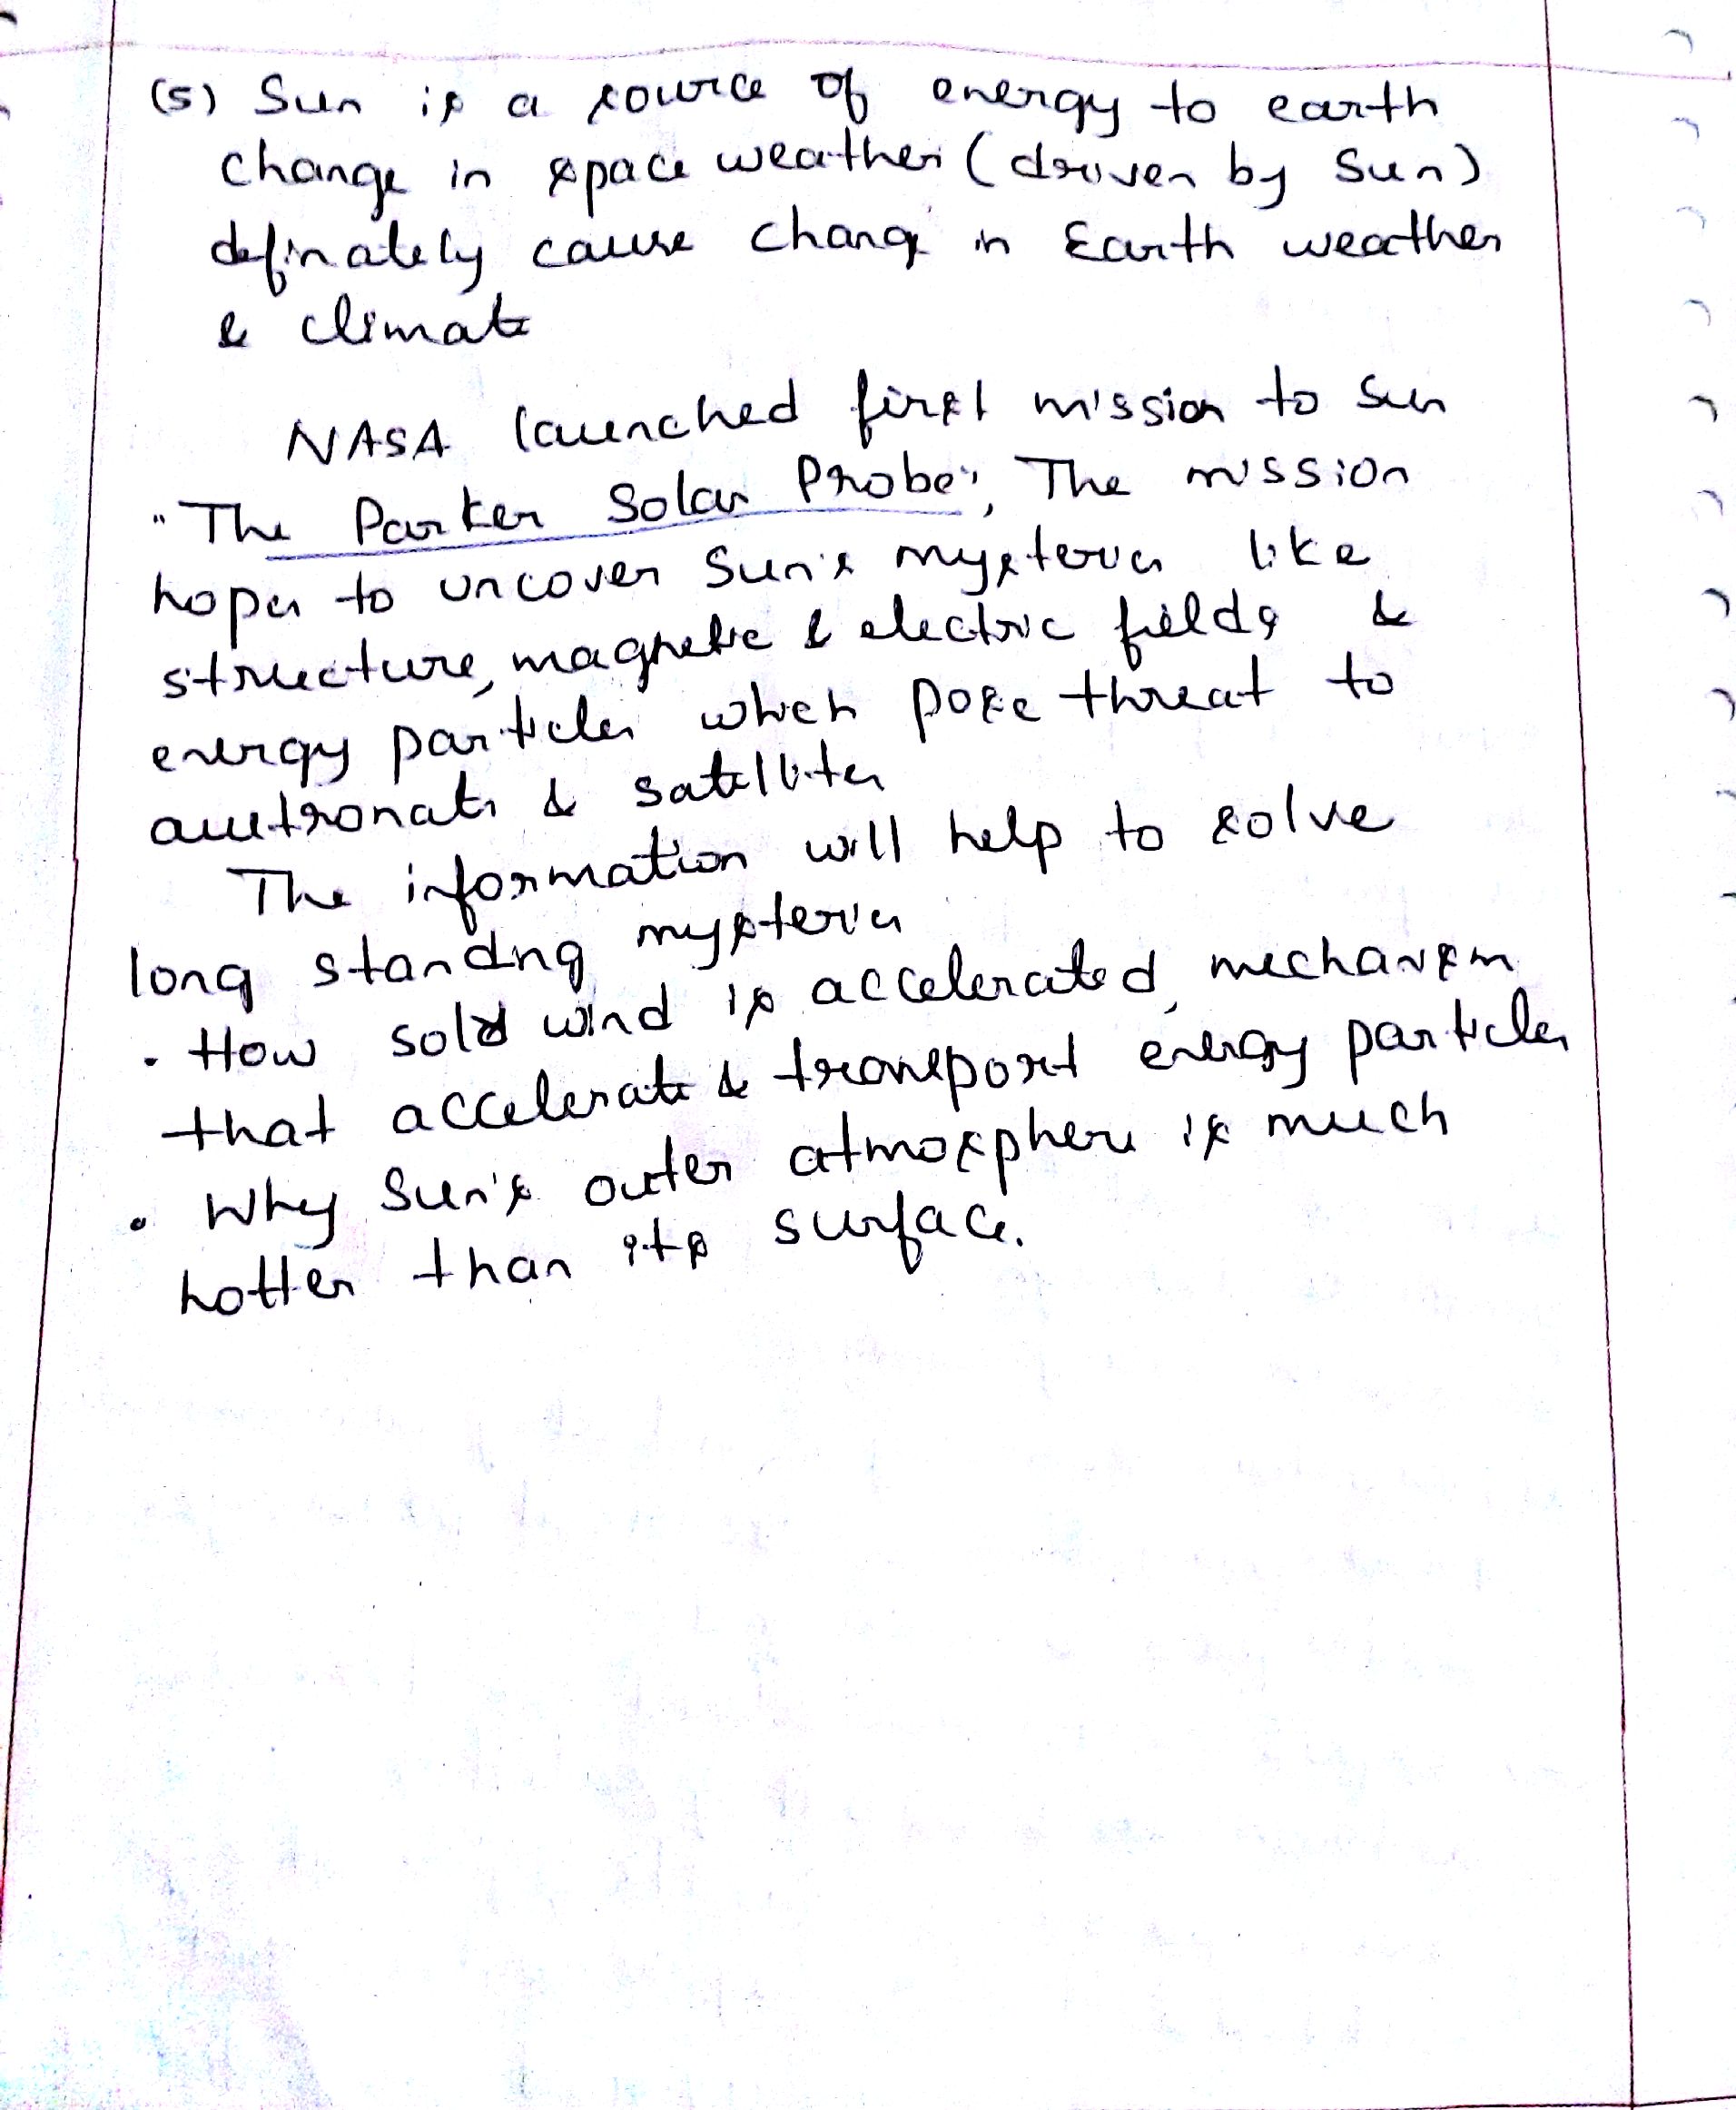 (5) Sun is a source of energy to earth
change in space weather (driven by Sun)
definately cause change in Earth weather
& climate
NASA launched first mission to Sun
"The Parker Solar Probe", The mission
hopes to uncover Sun's mysteries like
structure, magnetic & electric fields &
energy particles which pose threat to
austronats & satellites
The information will help to solve
long standing mysteries
• How solar wind is accelerated, mechanism
that accelerate & transport energy particles
• Why Sun's outer atmosphere is much
hotter than its surface.